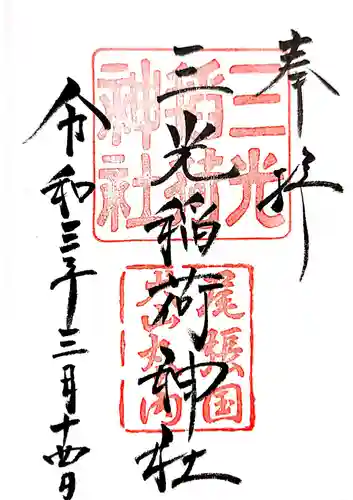 奉拝
三光稲荷神社
令和三年三月十四日
三光
稲荷
神社
尾張国
犬山城内